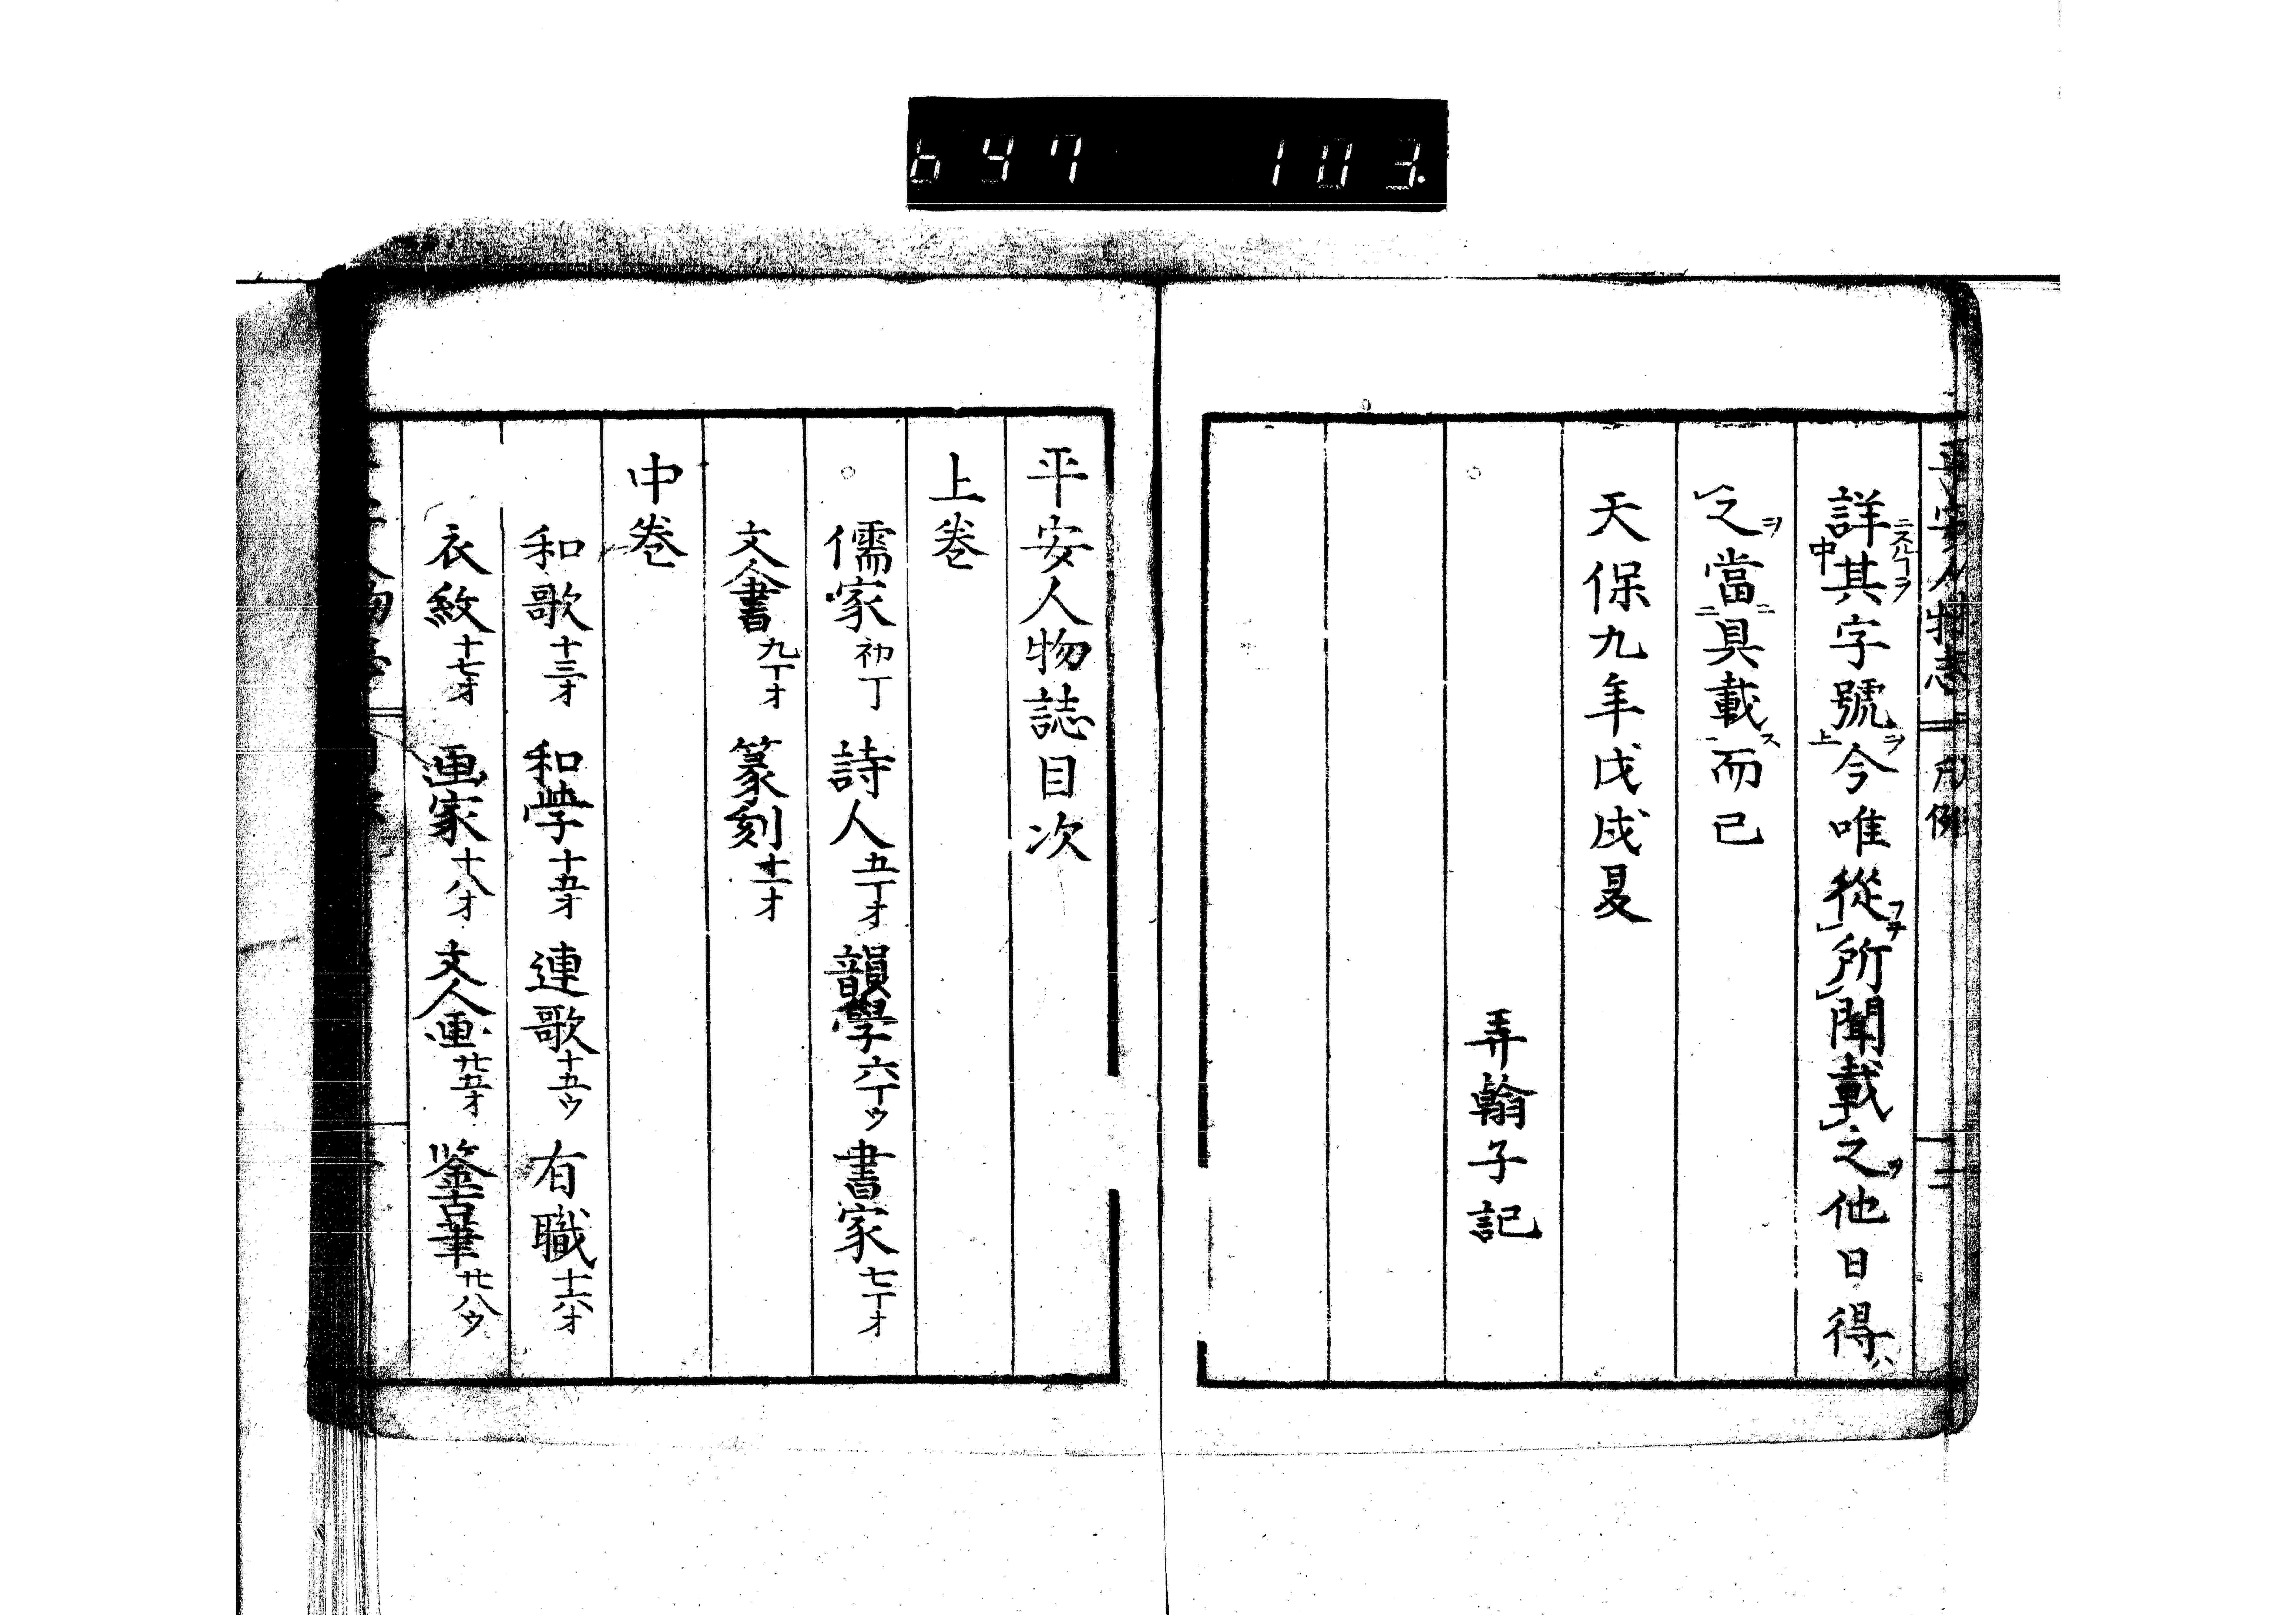 647 103
平安人物志 凡例 二
詳其字號今唯從所聞載之他日得
之當具載而已
天保九年戊戌夏
弄翰子記
平安人物誌目次
上巻
儒家 初丁 詩人 五丁オ 韻學 六丁ウ 書家 七丁オ
文人書 九丁オ 篆刻 十一オ
中巻
和歌 十三オ 和学 十五オ 連歌 十五ウ 有職 十六オ
衣紋 十七オ 画家 十八オ 文人画 廿五オ 鉴古筆 廿八ウ